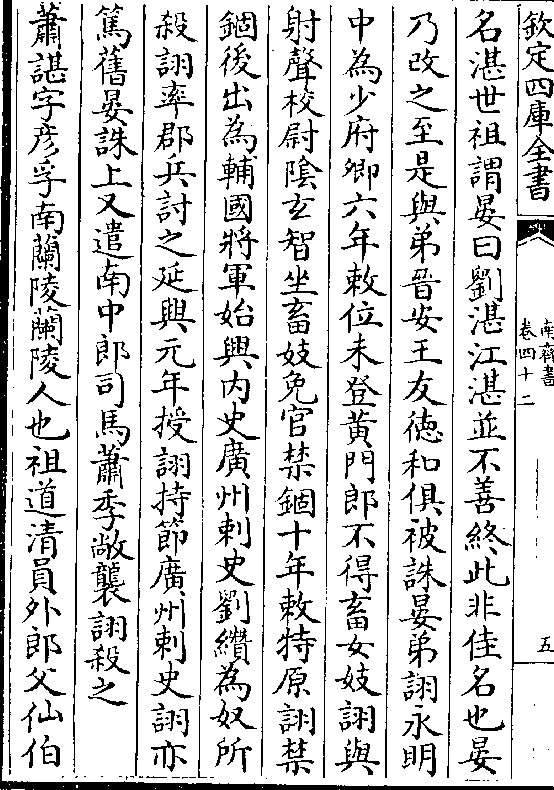 欽定四庫全書
南齊書
卷四十二
五
名湛世祖謂晏曰劉湛江湛並不善終此非佳名也晏
乃改之至是與弟晉安王友徳和俱被誅晏弟詡永明
中為少府卿六年敕位未登黄門郎不得畜女妓詡與
射聲校尉陰玄智坐畜妓免官禁錮十年敕特原詡禁
錮後出為輔國將軍始興内史廣州刺史劉纘為奴所
殺詡率郡兵討之延興元年授詡持節廣州刺史詡亦
篤舊晏誅上又遣南中郎司馬蕭季敞襲詡殺之
蕭諶字彦孚南蘭陵蘭陵人也祖道清員外郎父仙伯